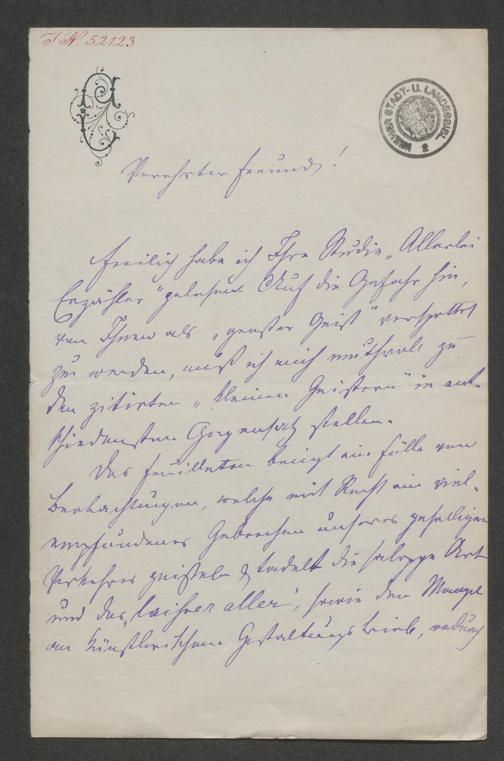 I. N. 52123
WIENER STADT- U. LANDESBIBL. 2
Verehrter Freund!
Freilich habe ich Ihre Studie „Allerlei
Erzähler" gelesen. Auf die Gefahr hin,
von Ihnen als „großer Geist" verspottet
zu werden, muß ich mich muthvoll zu
den zitirten „kleinen Geistern" in ent-
schiedensten Gegensatz stellen.
Das Feuilleton bringt eine Fülle von
Beobachtungen, welche mit Recht ein viel-
empfundenes Gebrechen unseres geselligen
Verkehres geißeln & tadelt die saloppe Art
und das „laisser aller", sowie den Mangel
an künstlerischem Gestaltungstrieb, wodurch